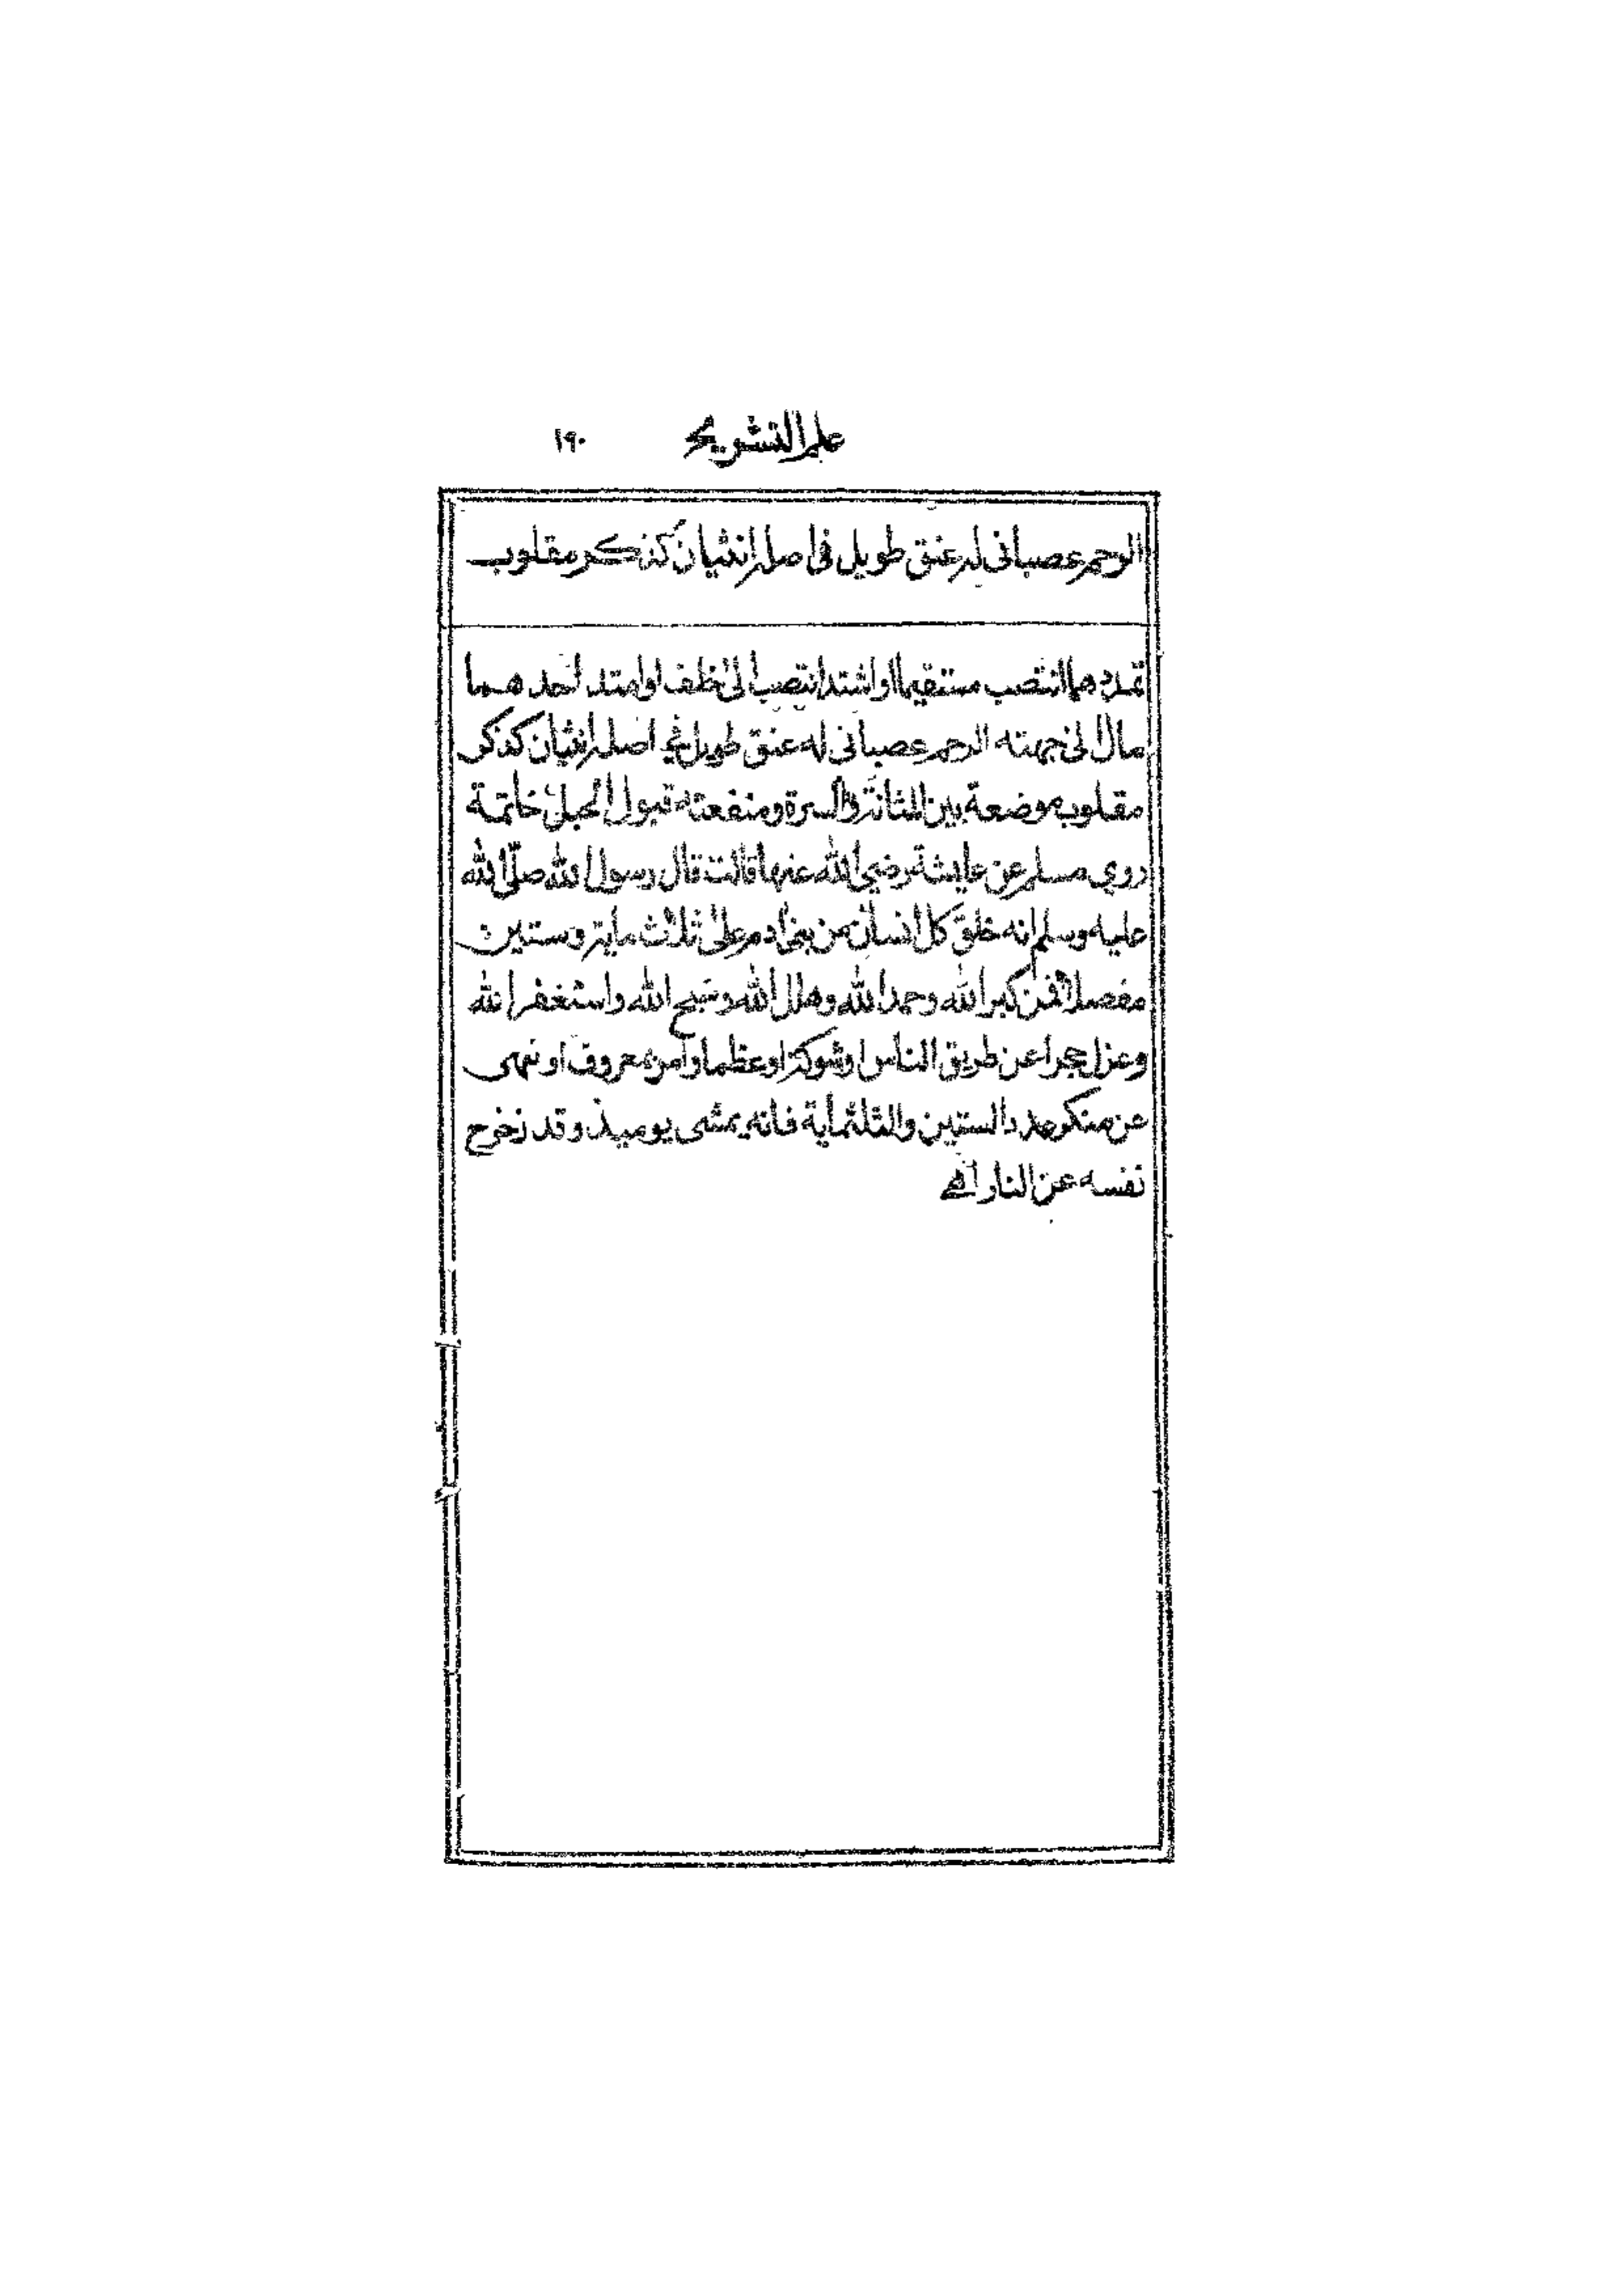 علم التشريح ١٩٠
الرحم عصبانى له عنق طويل فى اصله انثيان كذكر مقلوب
تمددهما انتصب مستقيما او اشتد انتصب الى خلف او امتد احدهما
مال الى جهته الرحم عصبانى له عنق طويل فى اصله انثيان كذكر
مقلوب موضعة بين المثانة والسرة ومنفعته قبول الحبل خاتمة
روى مسلم عن عايشة رضي الله عنها قالت قال رسول الله صلى الله
عليه وسلم انه خلق كل انسان من بنى ادم على ثلاث ماية وستين
مفصلا فمن كبر الله وحمد الله وهلل الله وسبح الله واستغفر الله
وعزل حجرا عن طريق الناس او شوكة او عظما او امر بمعروف او نهى
عن منكر عدد الستين والثلثماية فانه يمشى يوميذ وقد زخرح
نفسه عن النار